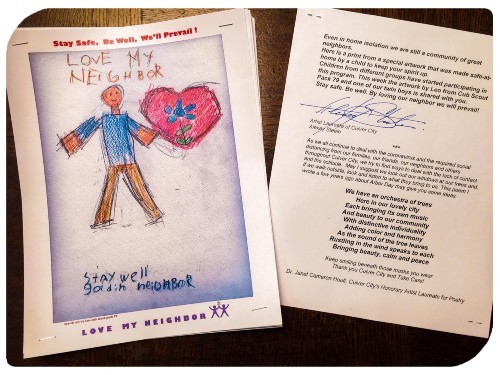 Stay Safe, Be Well, We'll Prevail !
LOVE MY
NEIGHBOR
STAY well
NEIGHBOR
LOVE MY NEIGHBOR
Even in home isolation we are still a community of great
neighbors.
Here is a print from a special artwork that was made safe-at-
home by a child to keep your spirit up.
Children from different groups have started participating in
this program. This week the artwork by Leo from Cub Scout
Pack 79 and one of our twin boys is shared with you.
Stay safe. Be well. By loving our neighbor we will prevail!
Artist Laureate of Culver City
Alexey Steele
***
As we all continue to deal with the coronavirus and the required social
distancing from our families, our friends, our neighbors and others
throughout Culver City, we try to find ways to deal with the lack of contact
and the solitude. May I suggest we look out our windows at our trees and,
if we walk outside, look and listen to what they bring to us. This poem I
wrote a few years ago about Arbor Day may give you some ideas.
We have an orchestra of trees
Here in our lovely city
Each bringing its own music
And beauty to our community
With distinctive individuality
Adding color and harmony
As the sound of the tree leaves
Rustling in the wind speaks to each
Bringing beauty, calm and peace
Keep smiling beneath those masks you wear
Thank you Culver City and Take Care!
Dr. Janet Cameron Hoult, Culver City's Honorary Artist Laureate for Poetry